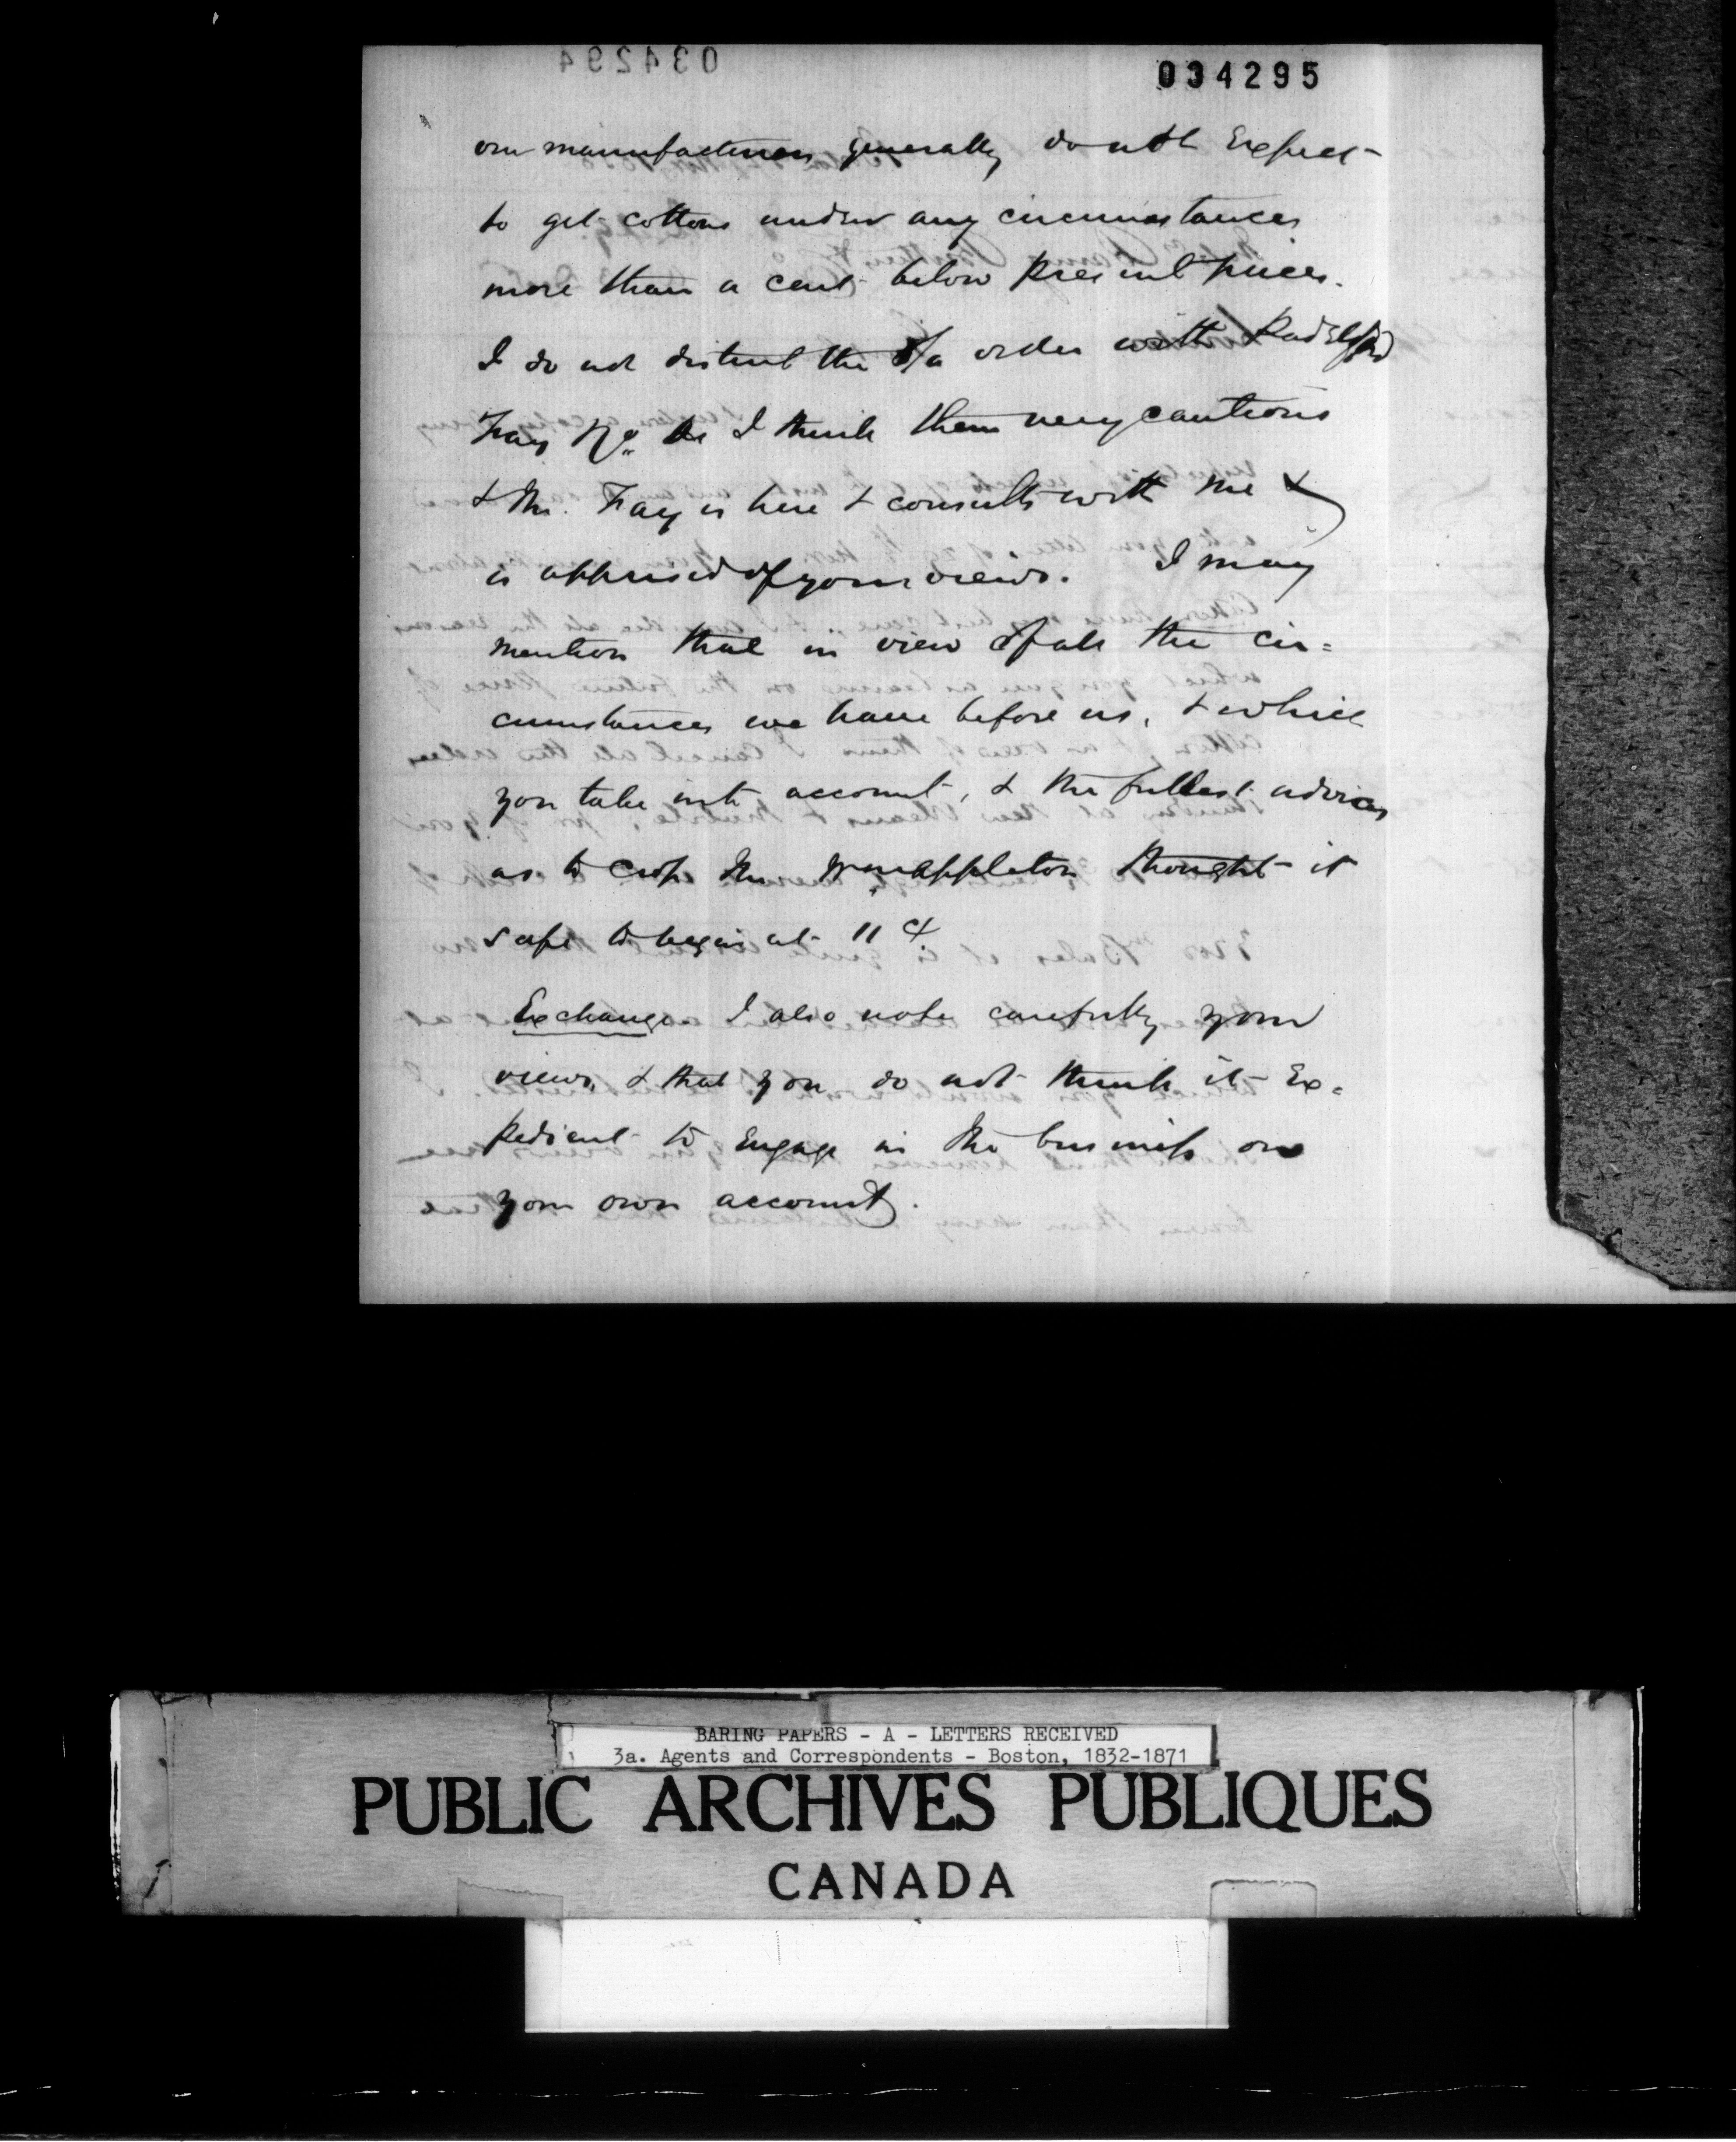 034294
034295
our manufacturers generally do not Expect
to get cottons under any circumstances
more than a cent below present prices.
I do not disturb the J/a order with Padelford
Fay & Co. as I think them very cautious
& Mr. Fay is here & consults with me &
is apprised of your views. I may
mention that in view of all the cir=
cumstances we have before us, & which
you take into account, & the fullest advices
as to crop Mr Wm Appleton thought it
safe to begin at 11 ¢
Exchange I also note carefully your
views, & that you do not think it Ex=
pedient to Engage in the business on
your own account.
BARING PAPERS - A - LETTERS RECEIVED
3a. Agents and Correspondents - Boston, 1832-1871
PUBLIC ARCHIVES PUBLIQUES
CANADA